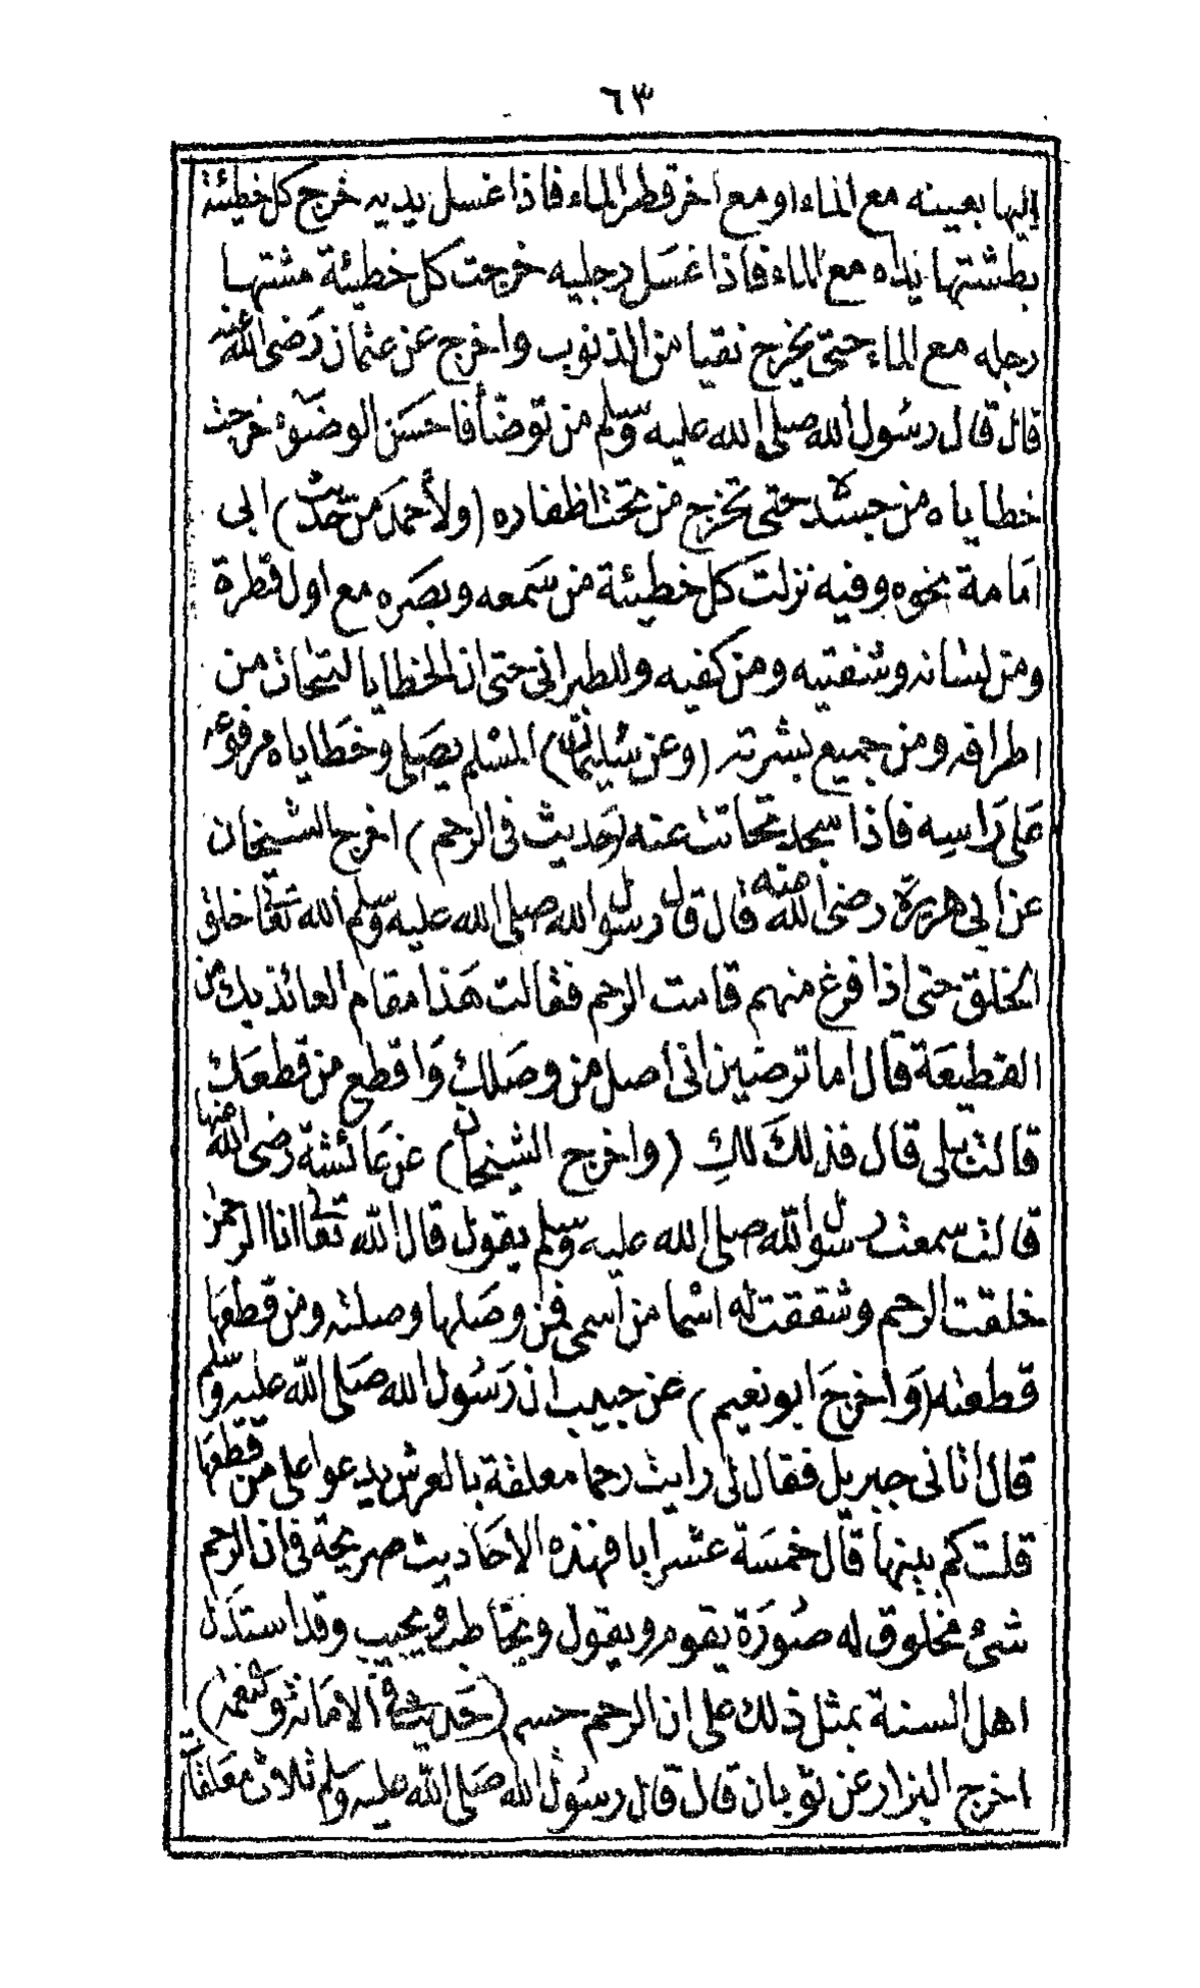 ٦٣
اليها بعينه مع الماء او مع اخر قطر الماء فاذا غسل يديه خرج كل خطيئة
بطشتها يداه مع الماء فاذا غسل رجليه خرجت كل خطيئة مشتها
رجله مع الماء حتى يخرج نقيا من الذنوب واخرج عن عثمان رضى الله عنه
قال قال رسول الله صلى الله عليه وسلم من توضأ فاحسن الوضوء خرجت
خطاياه من جسده حتى تخرج من تحت اظفاره (ولأحمد من حديث) ابى
امامة نحوه وفيه نزلت كل خطيئة من سمعه وبصره مع اول قطرة
ومن لسانه وشفتيه ومن كفيه وللطبرانى حتى ان الخطايا لتتحات من
اطرافه ومن جميع بشرته (وعن سليمان) المسلم يصلى وخطاياه مرفوعه
على راسه فاذا سجد تحاتت عنه (حديث فى الرحم) اخرج الشيخان
عن ابى هريرة رضى الله عنه قال قال رسول الله صلى الله عليه وسلم الله تعالى خلق
الخلق حتى اذا فرغ منهم قامت الرحم فقالت هذا مقام العائذ بك من
القطيعة قال اما ترضين انى اصل من وصلك واقطع من قطعك
قالت بلى قال فذلك لك (واخرج الشيخان) عن عائشة رضى الله عنها
قالت سمعت رسول الله صلى الله عليه وسلم يقول قال الله تعالى انا الرحمن
خلقت الرحم وشققت له اسما من اسمى فمن وصلها وصلته ومن قطعها
قطعته (واخرج ابو نعيم) عن حبيب ان رسول الله صلى الله عليه وسلم
قال اتانى جبريل فقال لى رايت رحما معلقة بالعرش يدعوا على من قطعها
قلت كم بينها قال خمسة عشر ابا فهذه الاحاديث صريحة فى ان الرحم
شىء مخلوق له صورة يقوم ويقول ويخاطب ويجيب وقد استدل
اهل السنة بمثل ذلك على ان الرحم جسم (حديث فى الامانة والنعمة)
اخرج البزار عن ثوبان قال قال رسول الله صلى الله عليه وسلم ثلاث معلقات